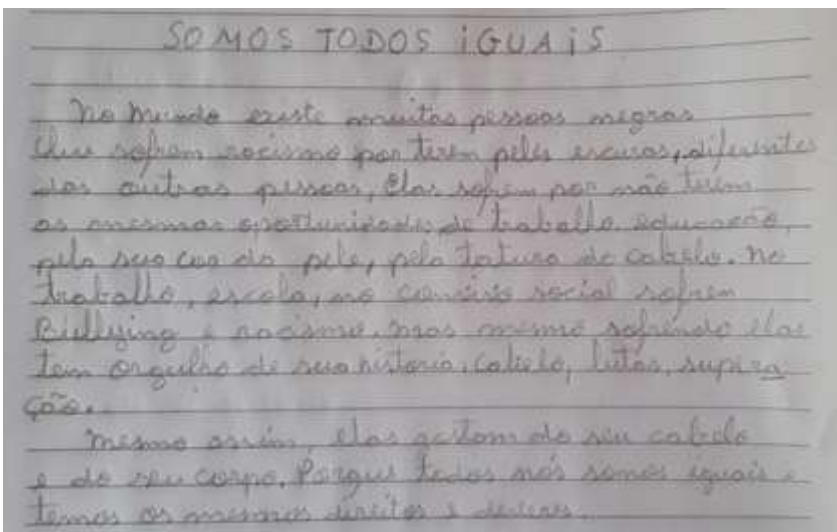 SOMOS TODOS iGUAiS
No mundo existe muitas pessoas negras
que sofrem racismo por terem peles escuras, diferentes
das outras pessoas, Elas sofrem por não terem
as mesmas oportunidades de trabalho, educação,
pela sua cor da pele, pela testura do cabelo. No
trabalho, escola, no convívio social sofrem
Bullying e racismo, mas mesmo sofrendo elas
tem orgulho de sua historia, cabelo, lutas, supera
ção.
Mesmo assim, elas gostam do seu cabelo
e do seu corpo. Porque todos nós somos iguais e
temos os mesmos direitos e deveres.